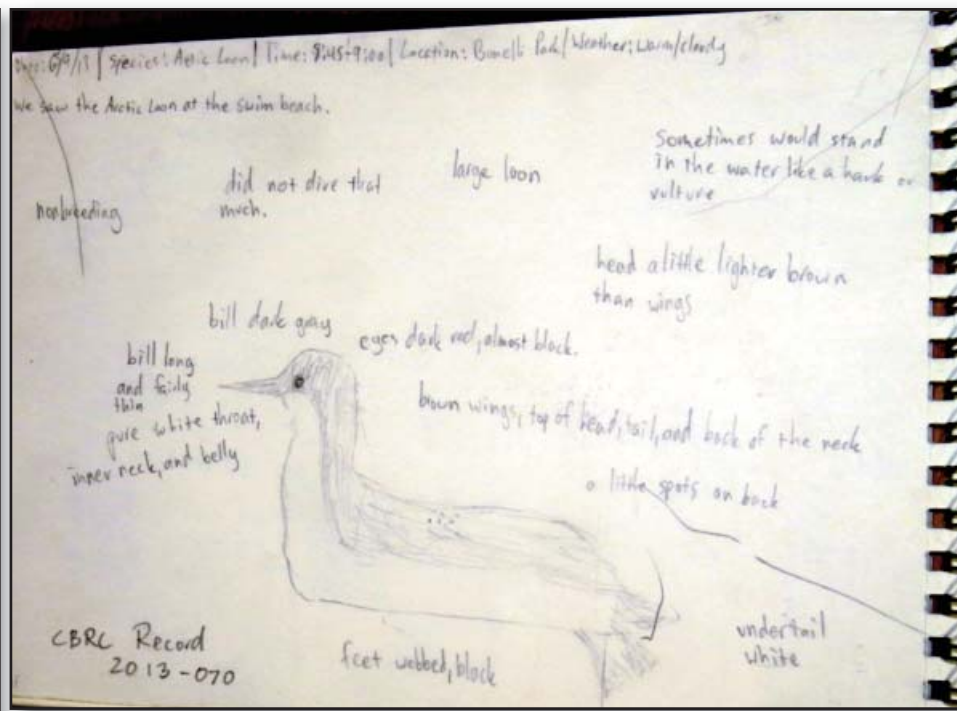 Date: 6/9/13 | Species: Arctic Loon | Time: 8:45-9:00 | Location: Bonelli Park / Weather: warm/cloudy
We saw the Arctic Loon at the swim beach.
nonbreeding
did not dive that
much.
large loon
Sometimes would stand
in the water like a hawk or
vulture
head a little lighter brown
than wings
bill dark gray
eyes dark red, almost black.
bill long
and fairly
thin
pure white throat,
inner neck, and belly
brown wings, top of head, tail, and back of the neck
a little spots on back
CBRC Record
2013-070
feet webbed, black
undertail
white